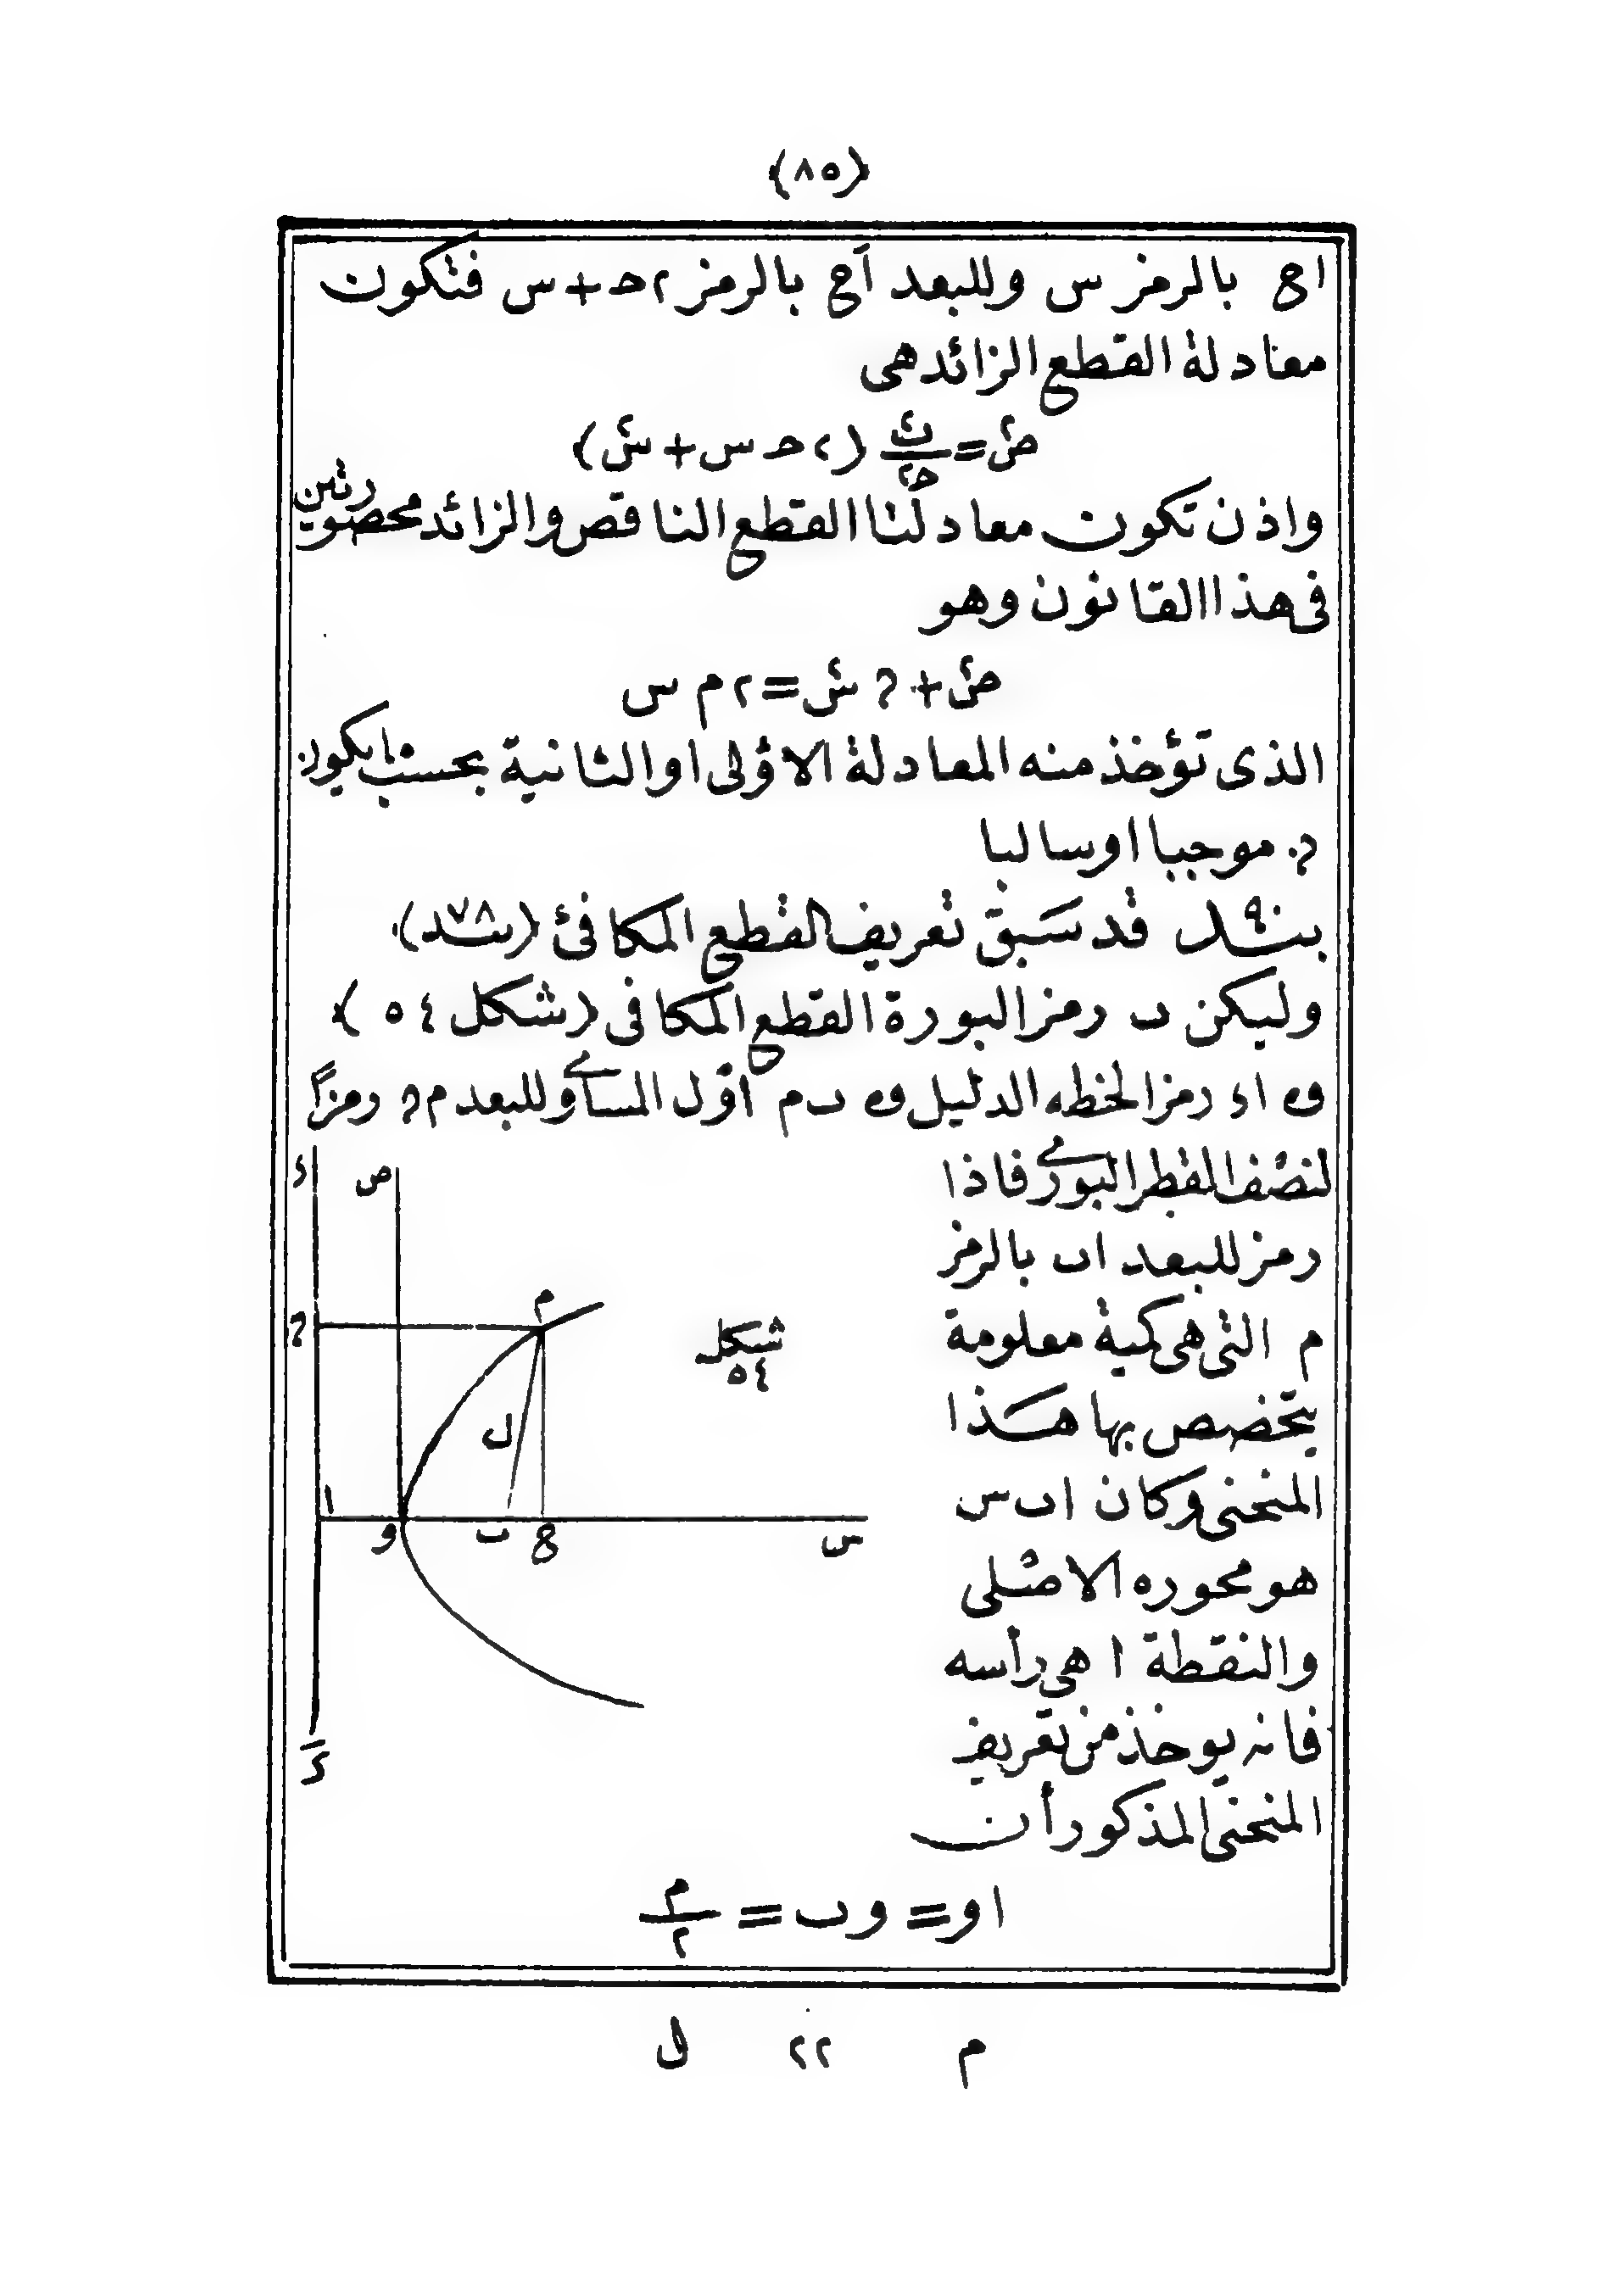 (٨٥)
اع بالرمز س وللبعد آع بالرمز ٢ح+س فتكون
معادلة القطع الزائد هى
ص٢ = ب٢/ح٢ (٢ح س + س٢)
واذن تكون معادلتا القطع الناقص والزائد محصورتين
فى هذا القانون وهو
ص٢ + ? س٢ = ٢ م س
الذى تؤخذ منه المعادلة الاولى او الثانية بحسب ما يكون
موجبا او سالبا
بنــ٩ـد قد سبق تعريف القطع المكافئ (بنــ٧٨ـد)
وليكن ب رمز البورة القطع المكافى (شكل ٥٤)
و ا ء رمز الخطه الدليل و ب م اول المساوى وللبعد م ? رمزاً
لنصف القطر البورى فاذا
رمز للبعد اب بالرمز
م التى هى كمية معلومة
يتخصص بها هذا
المنحنى وكان اب س
هو محوره الاصلى
والنقطة ا هى رأسه
فانه يوخذ من تعريف
المنحنى المذكور أن
او = وب = م/٢
ء
ص
?
م
ل
شكل
٥٤
ا
و
ب
ع
س
ءَ
م ٢٢ ل